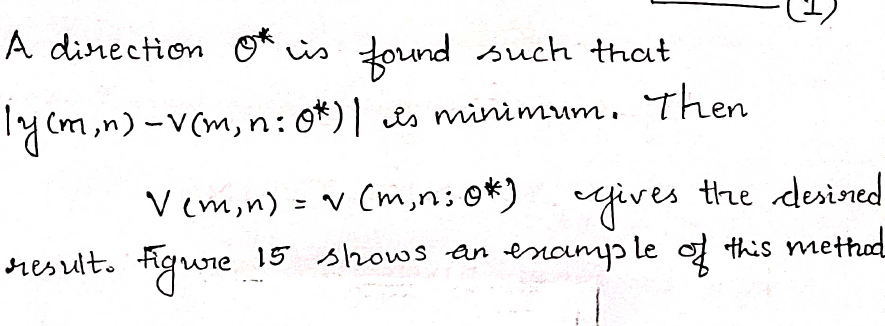 (1)
A direction θ* is found such that
|y(m,n) - v(m,n: θ*)| is minimum. Then
V(m,n) = v(m,n: θ*) gives the desired
result. Figure 15 shows an example of this method